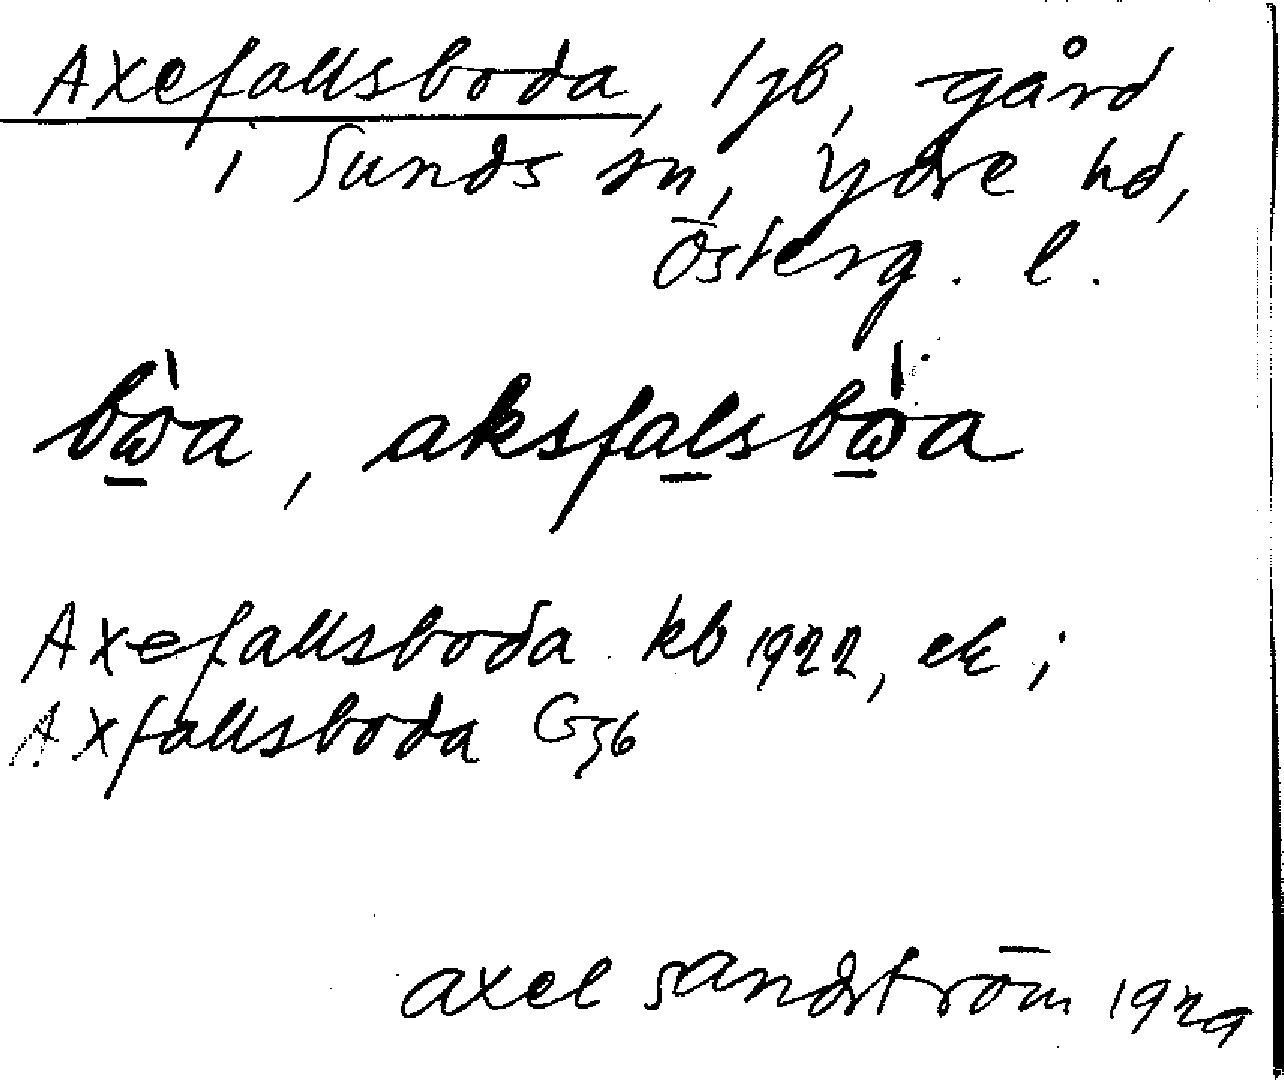 Axefallsboda, Jzb, gård
i Sunds sn, Ydre hd,
Österg. l.
bὼa, aksfalsbὼa
Axefallsboda kb 1922, ek;
Axfallsboda G36
axel sandström 1929